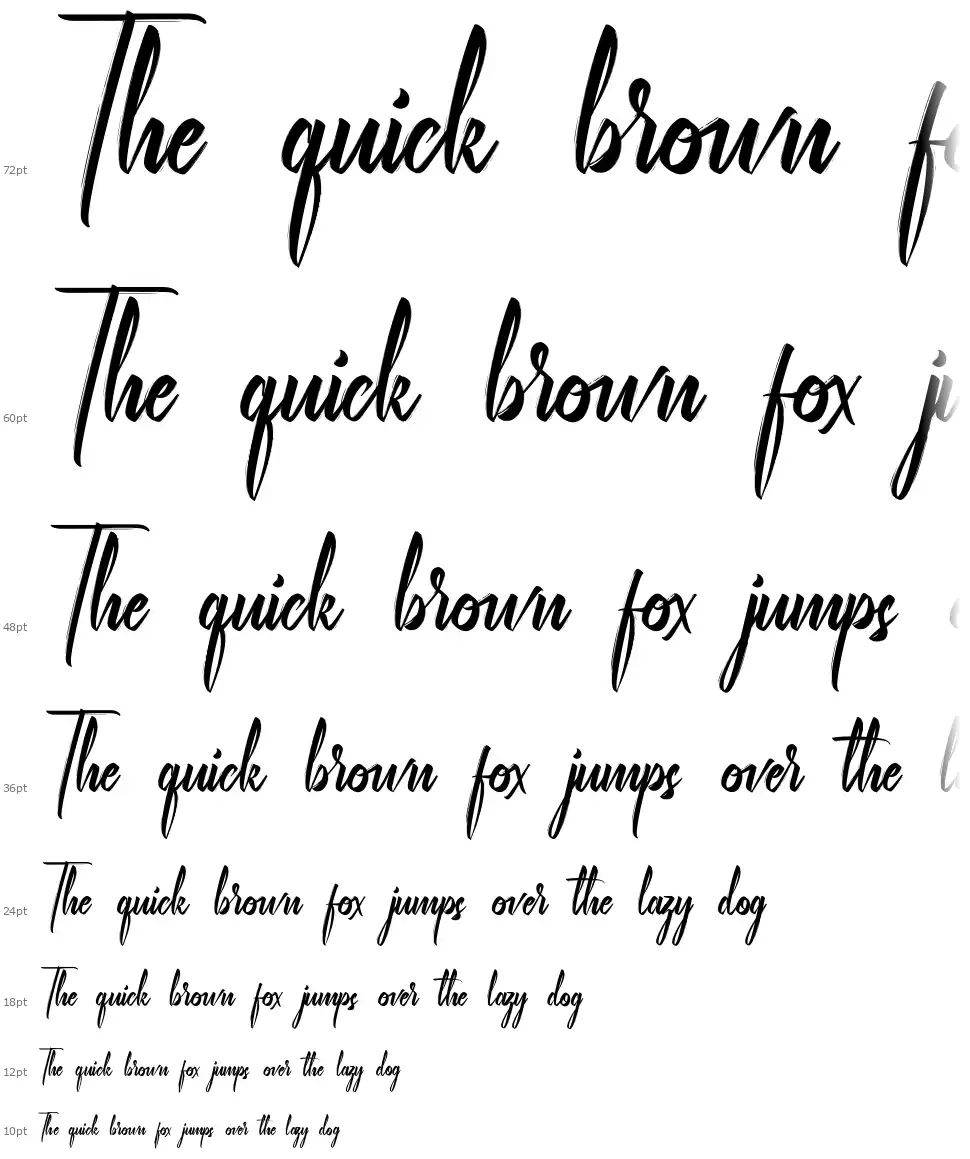 72pt The quick brown fo
60pt The quick brown fox ju
48pt The quick brown fox jumps
36pt The quick brown fox jumps over the l
24pt The quick brown fox jumps over the lazy dog
18pt The quick brown fox jumps over the lazy dog
12pt The quick brown fox jumps over the lazy dog
10pt The quick brown fox jumps over the lazy dog